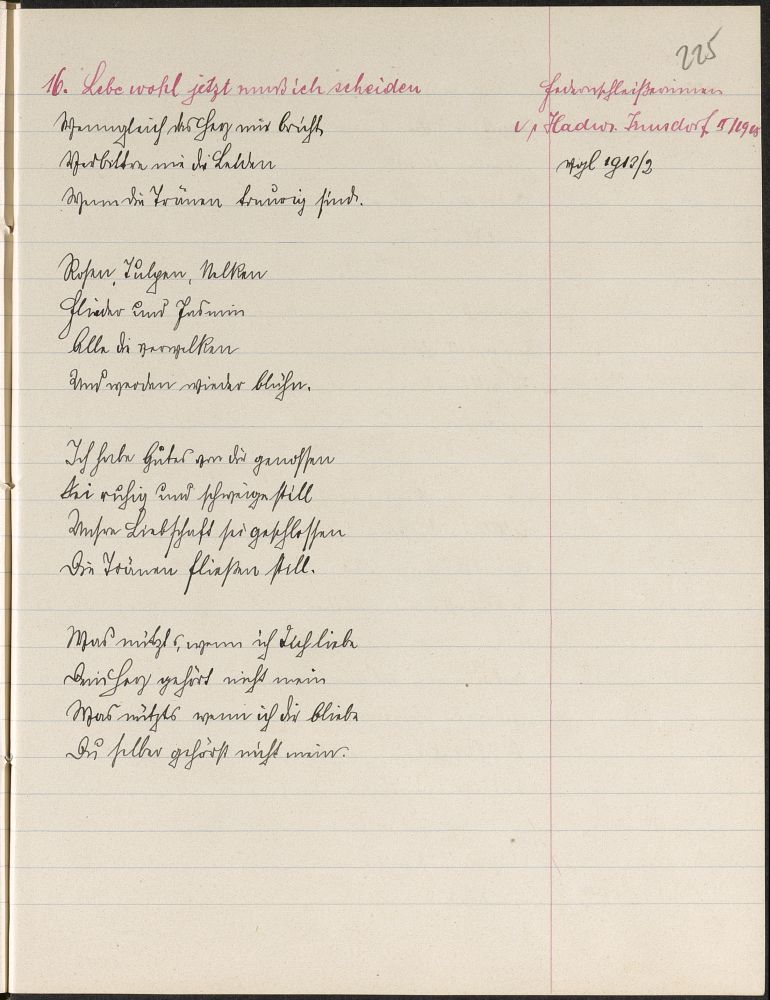 225
16. Lebe wohl jetzt muß ich scheiden
Federnschleißerinnen
Wenngleich das Herz mir bricht
Verbittre mir die Leiden
vgl 1913/2
Wenn die Tränen traurig sind.
Rosen, Tulpen, Nelken
Flieder und Jasmin
Alle die verwelken
Und werden wieder blühn.
Ich habe Gutes von dir genossen
Sei ruhig und schweige still
Unsre Liebschaft sei geschlossen
Die Tränen fließen still.
Was nützt's, wenn ich Dich liebe
Dein Herz gehört nicht mein
Was nützts wenn ich dir bliebe
Du selber gehörst nicht mein.